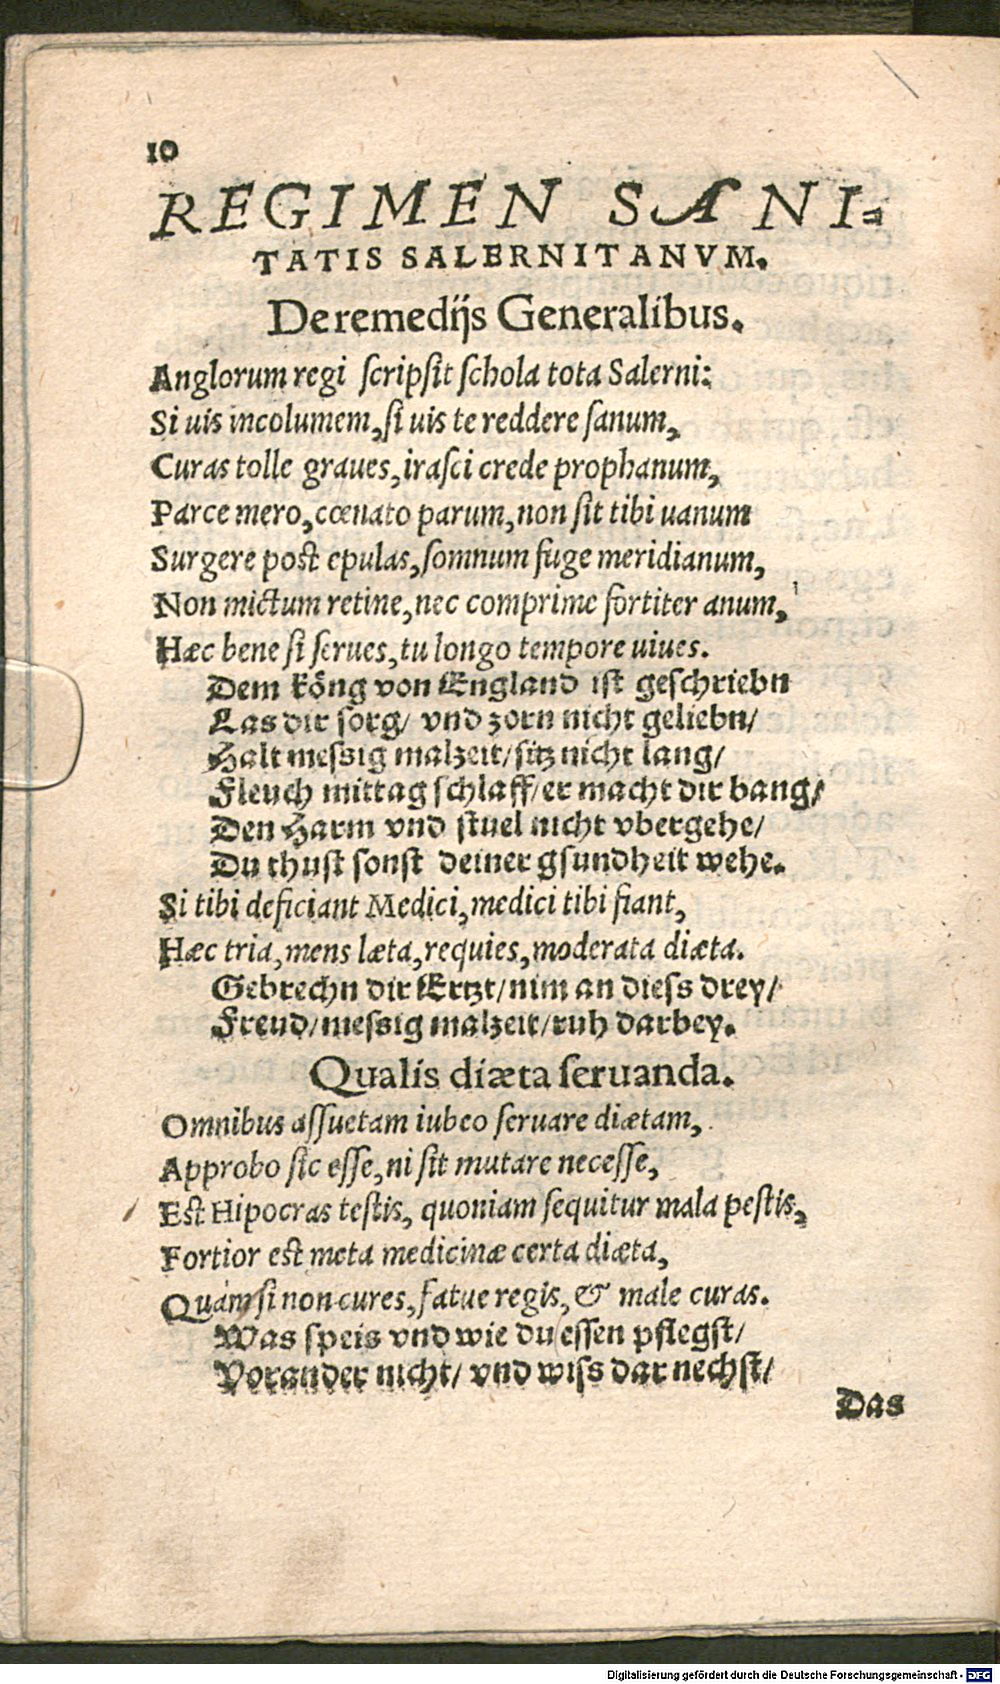 10
REGIMEN SANI=
TATIS SALERNITANVM.
De remedijs Generalibus.
Anglorum regi scripsit schola tota Salerni:
Si uis incolumem, si uis te reddere sanum,
Curas tolle graues, irasci crede prophanum,
Parce mero, cœnato parum, non sit tibi uanum
Surgere post epulas, somnum fuge meridianum,
Non mictum retine, nec comprime fortiter anum,
Hæc bene si serues, tu longo tempore uiues.
Dem köng von England ist geschriebn
Las dir sorg/ vnd zorn nicht geliebn/
Halt messig malzeit/sitz nicht lang/
Fleuch mittag schlaff/er macht dir bang/
Den Harm vnd stuel nicht vbergehe/
Du thust sonst deiner gsundheit wehe.
Si tibi deficiant Medici, medici tibi fiant,
Hæc tria, mens læta, requies, moderata diæta.
Gebrechn dir Ertzt/nim an diess drey/
Freud/messig malzeit/ruh darbey.
Qualis diæta seruanda.
Omnibus assuetam iubeo seruare diætam,
Approbo sic esse, ni sit mutare necesse,
Est Hipocras testis, quoniam sequitur mala pestis,
Fortior est meta medicinæ certa diæta,
Quàm si non cures, fatue regis, & male curas.
Was speis vnd wie du essen pflegst/
Vorander nicht/ vnd wiss dar nechst/
Das
Digitalisierung gefördert durch die Deutsche Forschungsgemeinschaft - DFG